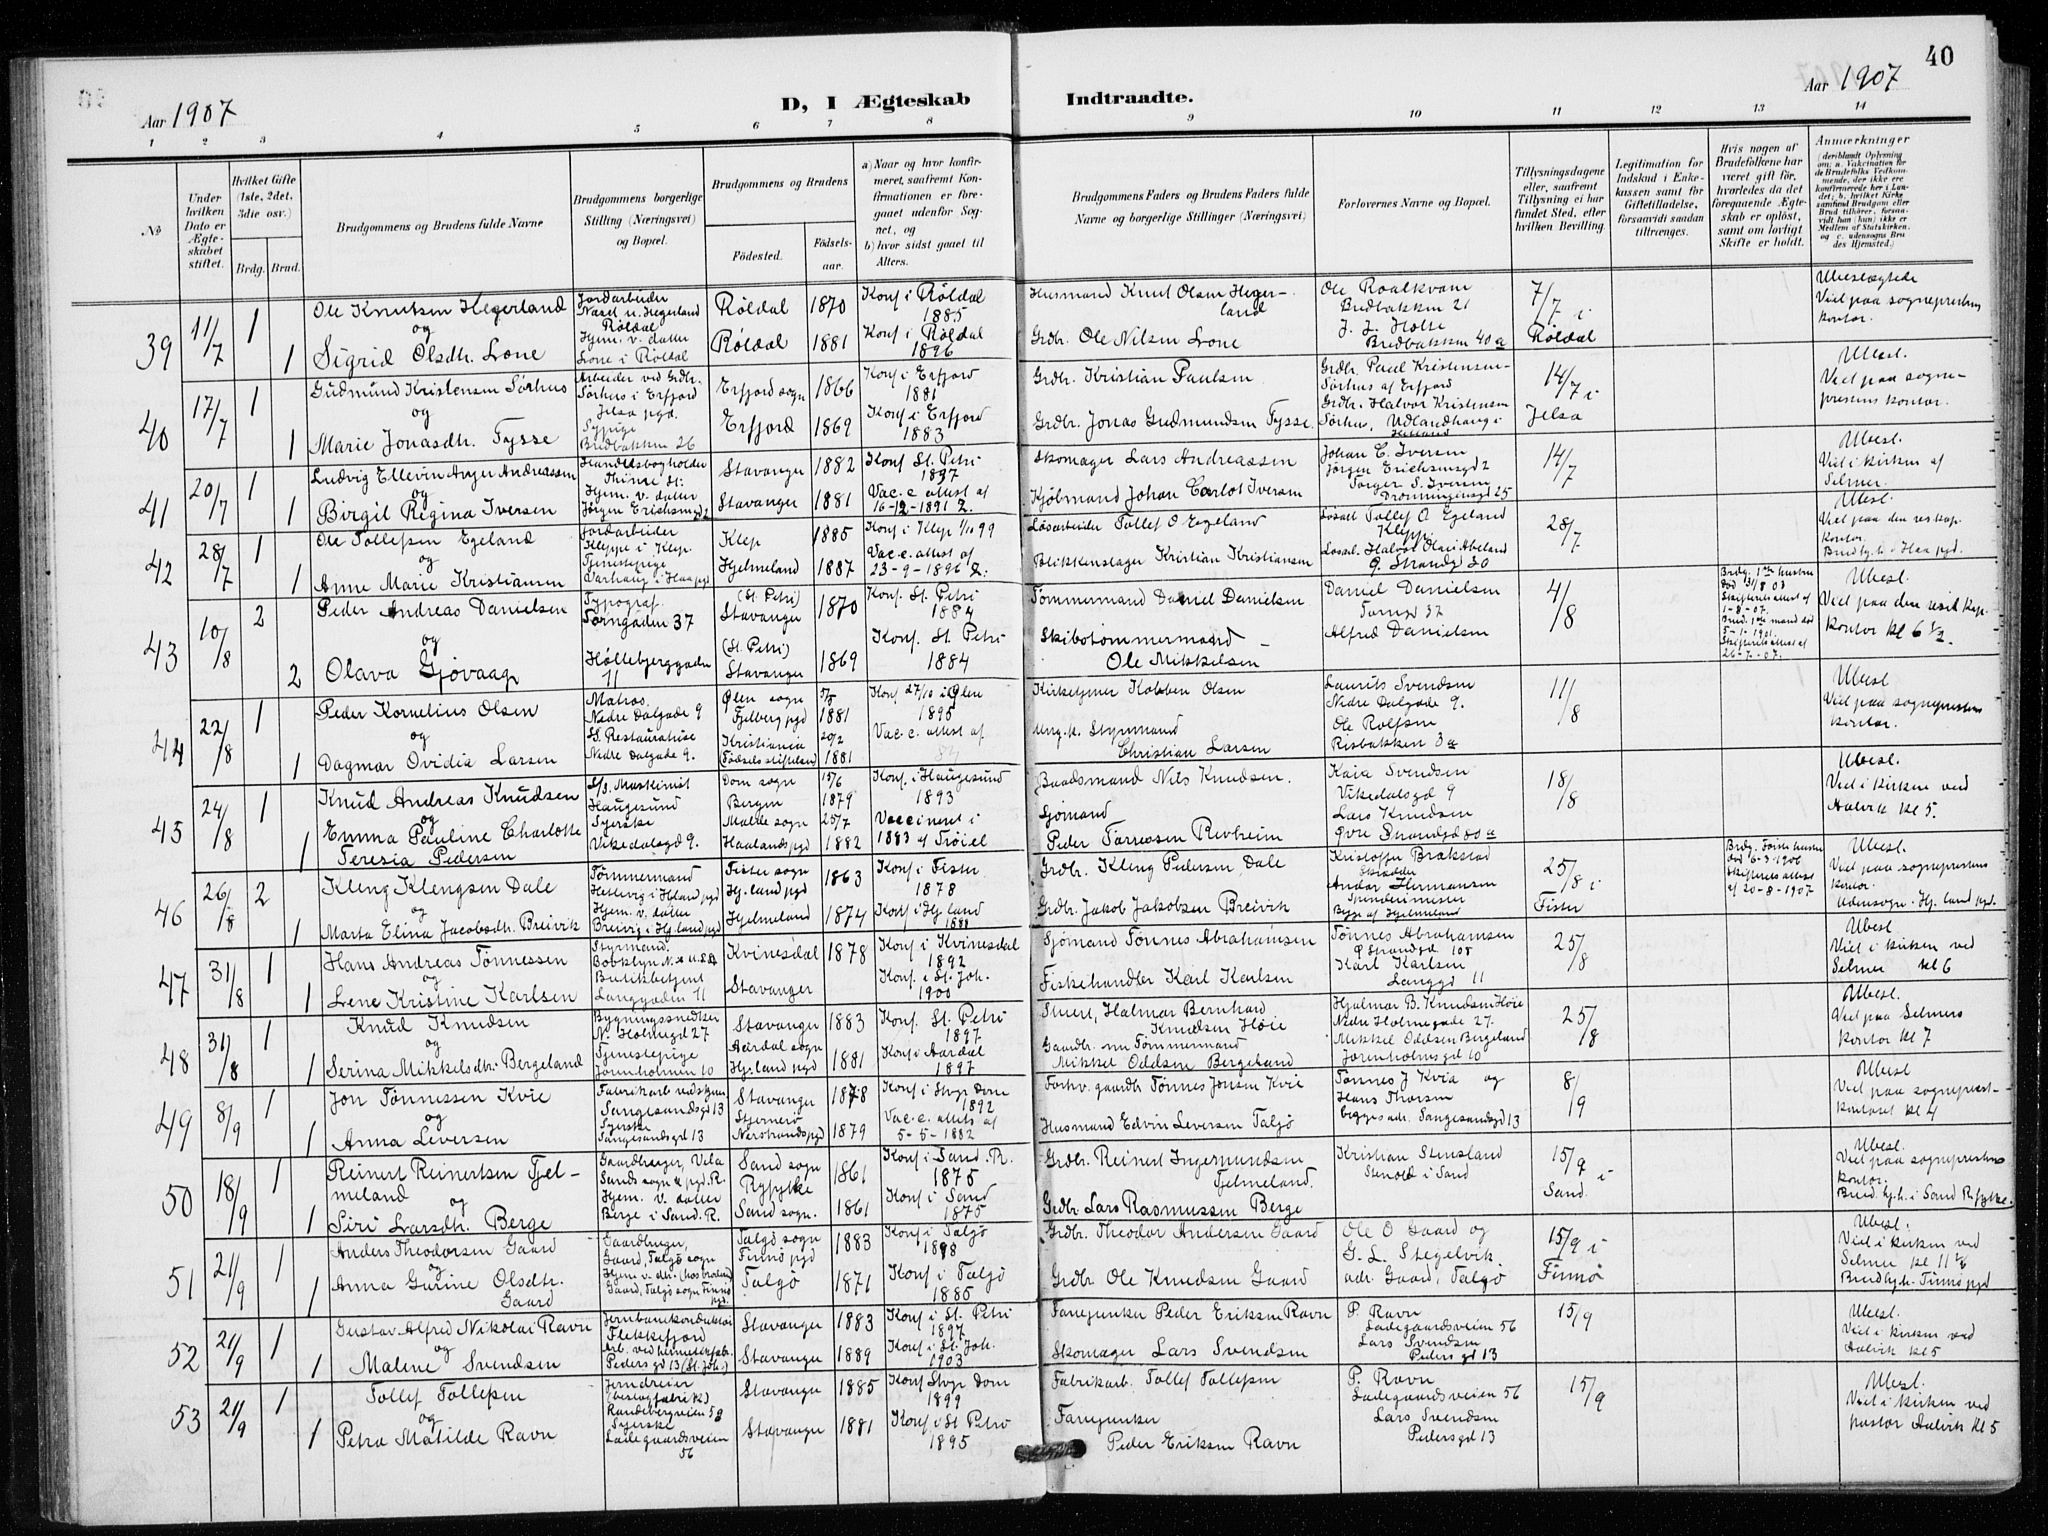 40
Aar 1907
D, I Ægteskab Indtraadte.
Aar 1907
1 2 3 4 5 6 7 8 9 10 11 12 13 14
No
Under hvilken Dato er Ægteskabet stiftet.
Hvilket Gifte (1ste, 2det, 3die osv.)
Brdg. Brud.
Brudgommens og Brudens fulde Navne
Brudgommens borgerlige Stilling (Næringsvei) og Bopæl.
Brudgommens og Brudens
Fødested.
Fødselsaar.
a) Naar og hvor konfirmeret, saafremt Konfirmationen er foregaaet udenfor Sognet, og
b) hvor sidst gaaet til Alters.
Brudgommens Faders og Brudens Faders fulde Navne og borgerlige Stillinger (Næringsvei)
Forlovernes Navne og Bopæl.
Tillysningsdagene eller, saafremt Tillysning ei har fundet Sted, efter hvilken Bevilling.
Legitimation for Indskud i Enkekassen samt for Giftetilladelse, forsaavidt saadan tiltrænges.
Hvis nogen af Brudefolkene har været gift før, hvorledes da det foregaaende Ægteskab er opløst, samt om lovligt Skifte er holdt.
Anmærkninger
39 11/7 1 Ole Knutsen Hegerland Jordarbeider Røldal 1870 Konf i Røldal 1885 Husmand Knut Olsen Hegerland Ole Roalkvam Bredbakken 21 7/7 i Røldal Ubeslægtede Viel paa sogneprestens kontor.
og
1 Sigrid Olsdtr. Lone Hjem. v. datter Lone i Røldal Røldal 1881 Konf. i Røldal 1896 Grdbr. Ole Nilsen Lone J. J. Holte Bredbakken 40 a
40 17/7 1 Gudmund Kristensen Sørhus Arbeider ved Grdbr. Sørhus i Erfjord Jelsa pgd. Erfjord sogn 1866 Konf i Erfjord 1881 Grdbr. Kristian Paulsen Grdbr. Paul Kristensen Sørhus af Erfjord 14/7 i Jelsa Ubesl. Viet paa sogneprestens kontor.
og
1 Marie Jonasdtr. Tysse Sypige Bredbakken 26 Erfjord 1869 Konf i Erfjord 1883 Grdbr. Jonas Gudmundsen Tysse Grdbr. Halvor Kristensen Sørhus,
41 20/7 1 Ludvig Ellevin Anger Andreassen Handelsbogholder Stavanger 1882 Konf. St. Petri 1897 Skomager Lars Andreassen Johan C. Iversen Jørgen Erichsensgd 2 14/7 Ubesl. Viet i kirken af Selmer.
og
1 Birgit Regina Iversen Hjem. v. datter Jørgen Erichsensgd 2 Stavanger 1881 Vac.c. attest af 16-12-1891 Z. Kjøbmand Johan Carlot Iversen Torger S. Iversen Dronningensgd 25
42 28/7 1 Ole Tollefsen Egeland Jordarbeider Kleppe i Klep. Klep 1885 Konf i Klep 1/10 99 Løsarbeider Tollef O Egeland Løsarb. Tollef O Egeland Klepp. 28/7 Ubesl. Viet paa den res. kap. kontor.
og
1 Anne Marie Kristiansen Tjenestepige Varhaug i Haa pgd Hjelmeland 1887 Vac.c. attest af 23-9-1896 Z. Blikkenslager Kristian Kristiansen Ø. Strandgd 30
43 10/8 2 Peder Andreas Danielsen Typograf. Torngaden 37 (St. Petri) Stavanger 1870 Konf. St. Petri 1884 Tømmermand Daniel Danielsen Daniel Danielsen Torngd 37 4/8 Brdg. 1ste hustru død 13/8 03 Skifteretsattest af 1-8-07. Brud. 1ste mand død 5-1-1901. Skifteretsattest af 26-7-07. Ubesl. Viet paa den resid. kap. kontor kl 6 1/2.
og
2 Olava Gjøvaag Høllebjerggaden 11 (St. Petri) Stavanger 1869 Konf. St. Petri 1884 Skibstømmermand Ole Mikkelsen Alfred Danielsen
44 22/8 1 Peder Kornelius Olsen Matros. Nedre Dalgade 9 Ølen sogn Fjelberg pgd 1881 Konf 27/10 i Ølen 1895 Kirketjener Kolben Olsen Laurits Svendsen Nedre Dalgade 9. 11/8 Ubesl Viet paa sogneprestens kontor.
og
1 Dagmar Ovidia Larsen Nedre Dalgade 9. Kristiania (Fødselsstiftelsen) 20/2 1881 Vac. c. attest af Styrmand Christian Larsen Ole Rolfsen Risbakken 3 a
45 24/8 1 Knud Andreas Knudsen S/s. Maskinist Haugesund Dom sogn Bergen 15/6 1879 Konf. i Haugesund 1893 Baadsmand Nils Knudsen. Kaia Svendsen Vikedalsgd 9 18/8 Ubesl. Viet i kirken ved Aalvik kl 5.
og
1 Emma Pauline Charlotte Teresia Pedersen Syerske Vikedalsgd 9. Malde sogn Haalands pgd 25/7 1882 Vaccineret i 1883 af Trøiel Sjømand Peder Tørresen Revheim Lars Knudsen Øvre Strandgd 80 a
46 26/8 2 Kleng Klengsen Dale Tømmermand Fister sogn Hj. land pgd 1863 Konf. i Fister 1878 Grdbr. Kleng Pedersen Dale Kristoffer Brakstad Skrædder 25/8 i Fister Brdg. første hustru død 6-3-1906 Skifteretsattest af 20-8-1907 Ubesl. Viet paa sogneprestens kontor. Udensogn. Hj. land pgd.
og
1 Marta Elina Jacobsdtr. Breivik Hjem. v. datter Breivig i Hj. land pgd Hjelmeland 1874 Konf. i Hj. land 1888 Grdbr. Jakob Jakobsen Breivik Andor Hermansen Spinderimester Begge af Hjelmeland
47 31/8 1 Hans Andreas Tønnessen Styrmand. Kvinesdal 1878 Konf i Kvinesdal 1892 Sjømand Tønnes Abrahamsen Tønnes Abrahamsen Ø Strandgd 105 25/8 Ubesl Viet i kirken ved Selmer kl 6
og
1 Lene Kristine Karlsen Butikbetjent Langgaden 11 Stavanger Konf. i St. Joh. 1900 Fiskehandler Karl Karlsen Karl Karlsen Langgd 11
48 31/8 1 Knud Knudsen Bygningssnedker N. Holmegd 27 Stavanger 1883 Konf. St. Petri 1897 Stuert, Halmar Bernhard Knudsen Høie Hjalmar B. Knudsen Høie Nedre Holmegade 27. 25/8 Ubesl. Viet paa Selmers kontor kl 7
og
1 Serina Mikkelsdtr. Bergeland Tjenestepige Jorenholmen 10 Aardal sogn Hj. land pgd 1881 Konf i Aardal 1897 Gaardbr. nu Tømmermand Mikkel Oddsen Bergeland Mikkel Oddsen Bergeland Jorenholmsgd 10
49 8/9 1 Jon Tønnessen Kvie Sangesandsgd 13 Stavanger 1878 Konf i Stvgr Dom 1892 Forhv. gaardbr Tønnes Jonsen Kvie Tønnes J Kvia og 8/9 Ubesl Viet paa sogneprestkontoret kl 4
og
1 Anna Leversen Syerske Sangesandsgd 13 Stjernerø Nerstrands pgd 1879 Vac. c. attets af 5-5-1882 Husmand Edvin Leversen Talgø Hans Thorsen begges adr. Sangesandsgd 13
50 18/9 1 Reinert Reinertsen Fjelmeland Gaardbruger, Sand sogn Ryfylke 1861 Konf i Sand. R. 1875 Grdbr. Reinert Ingemundsen Fjelmeland. Kristian Stensland Stenold i Sand 15/9 i Sand. Ubesl. Viet paa sogneprestens kontor. Brud. hjh. i Sand Ryfylke.
og
1 Siri Larsdtr. Berge Hjem. v. datter Berge i Sand. R. Sand sogn. 1861 Konf. i Sand 1875 Grdbr. Lars Rasmussen Berge
51 21/9 1 Anders Theodorsen Gaard Gaardbruger, Gaard, Talgø sogn Talgø sogn Finnø pgd 1883 Konf. i Talgø 1898 Grdbr. Theodor Andersen Gaard Ole O Gaard og 15/9 i Finnø Ubesl. Viet i kirken ved Selmer kl 11 1/2
og
1 Anna Gurine Olsdtr. Gaard Gaard, Talgø sogn Finnø pgd. Talgø 1871 Konf. i Talgø 1885 Grdbr Ole Knudsen Gaard G. L. Stegelvik adr. Gaard, Talgø
52 21/9 1 Gustav Alfred Nikolai Ravn Jernbanekonduktør Flekkefjord Stavanger 1883 Konf i St. Petri 1897 Fanejunker Peder Eriksen Ravn P. Ravn Ladegaardsveien 56 15/9 Ubesl. Viet i kirken ved Aalvik kl 5
og
1 Malene Svendsen Arb. ved hermetikfab. Pedersgd 13 (St. Joh.) Stavanger 1889 Konf. i St. Joh. 1903 Skomager Lars Svendsen Lars Svendsen Pedersgd 13
53 21/9 1 Tollef Tollefsen Jerndreier (beslagfabrik) Randebergveien 58 Stavanger 1885 Konf Stvgr Dom 1899 Fabrikarb. Tollef Tollefsen P. Ravn Ladegaardsveien 56 15/9 Ubesl. Viet i kirken ved pastor Aalvik kl 5
og
1 Petra Matilde Ravn Syerske Ladegaardsveien 56 Stavanger 1881 Konf i St Petri 1895 Fanejunker Peder Eriksen Ravn Lars Svendsen Pedersgd 13